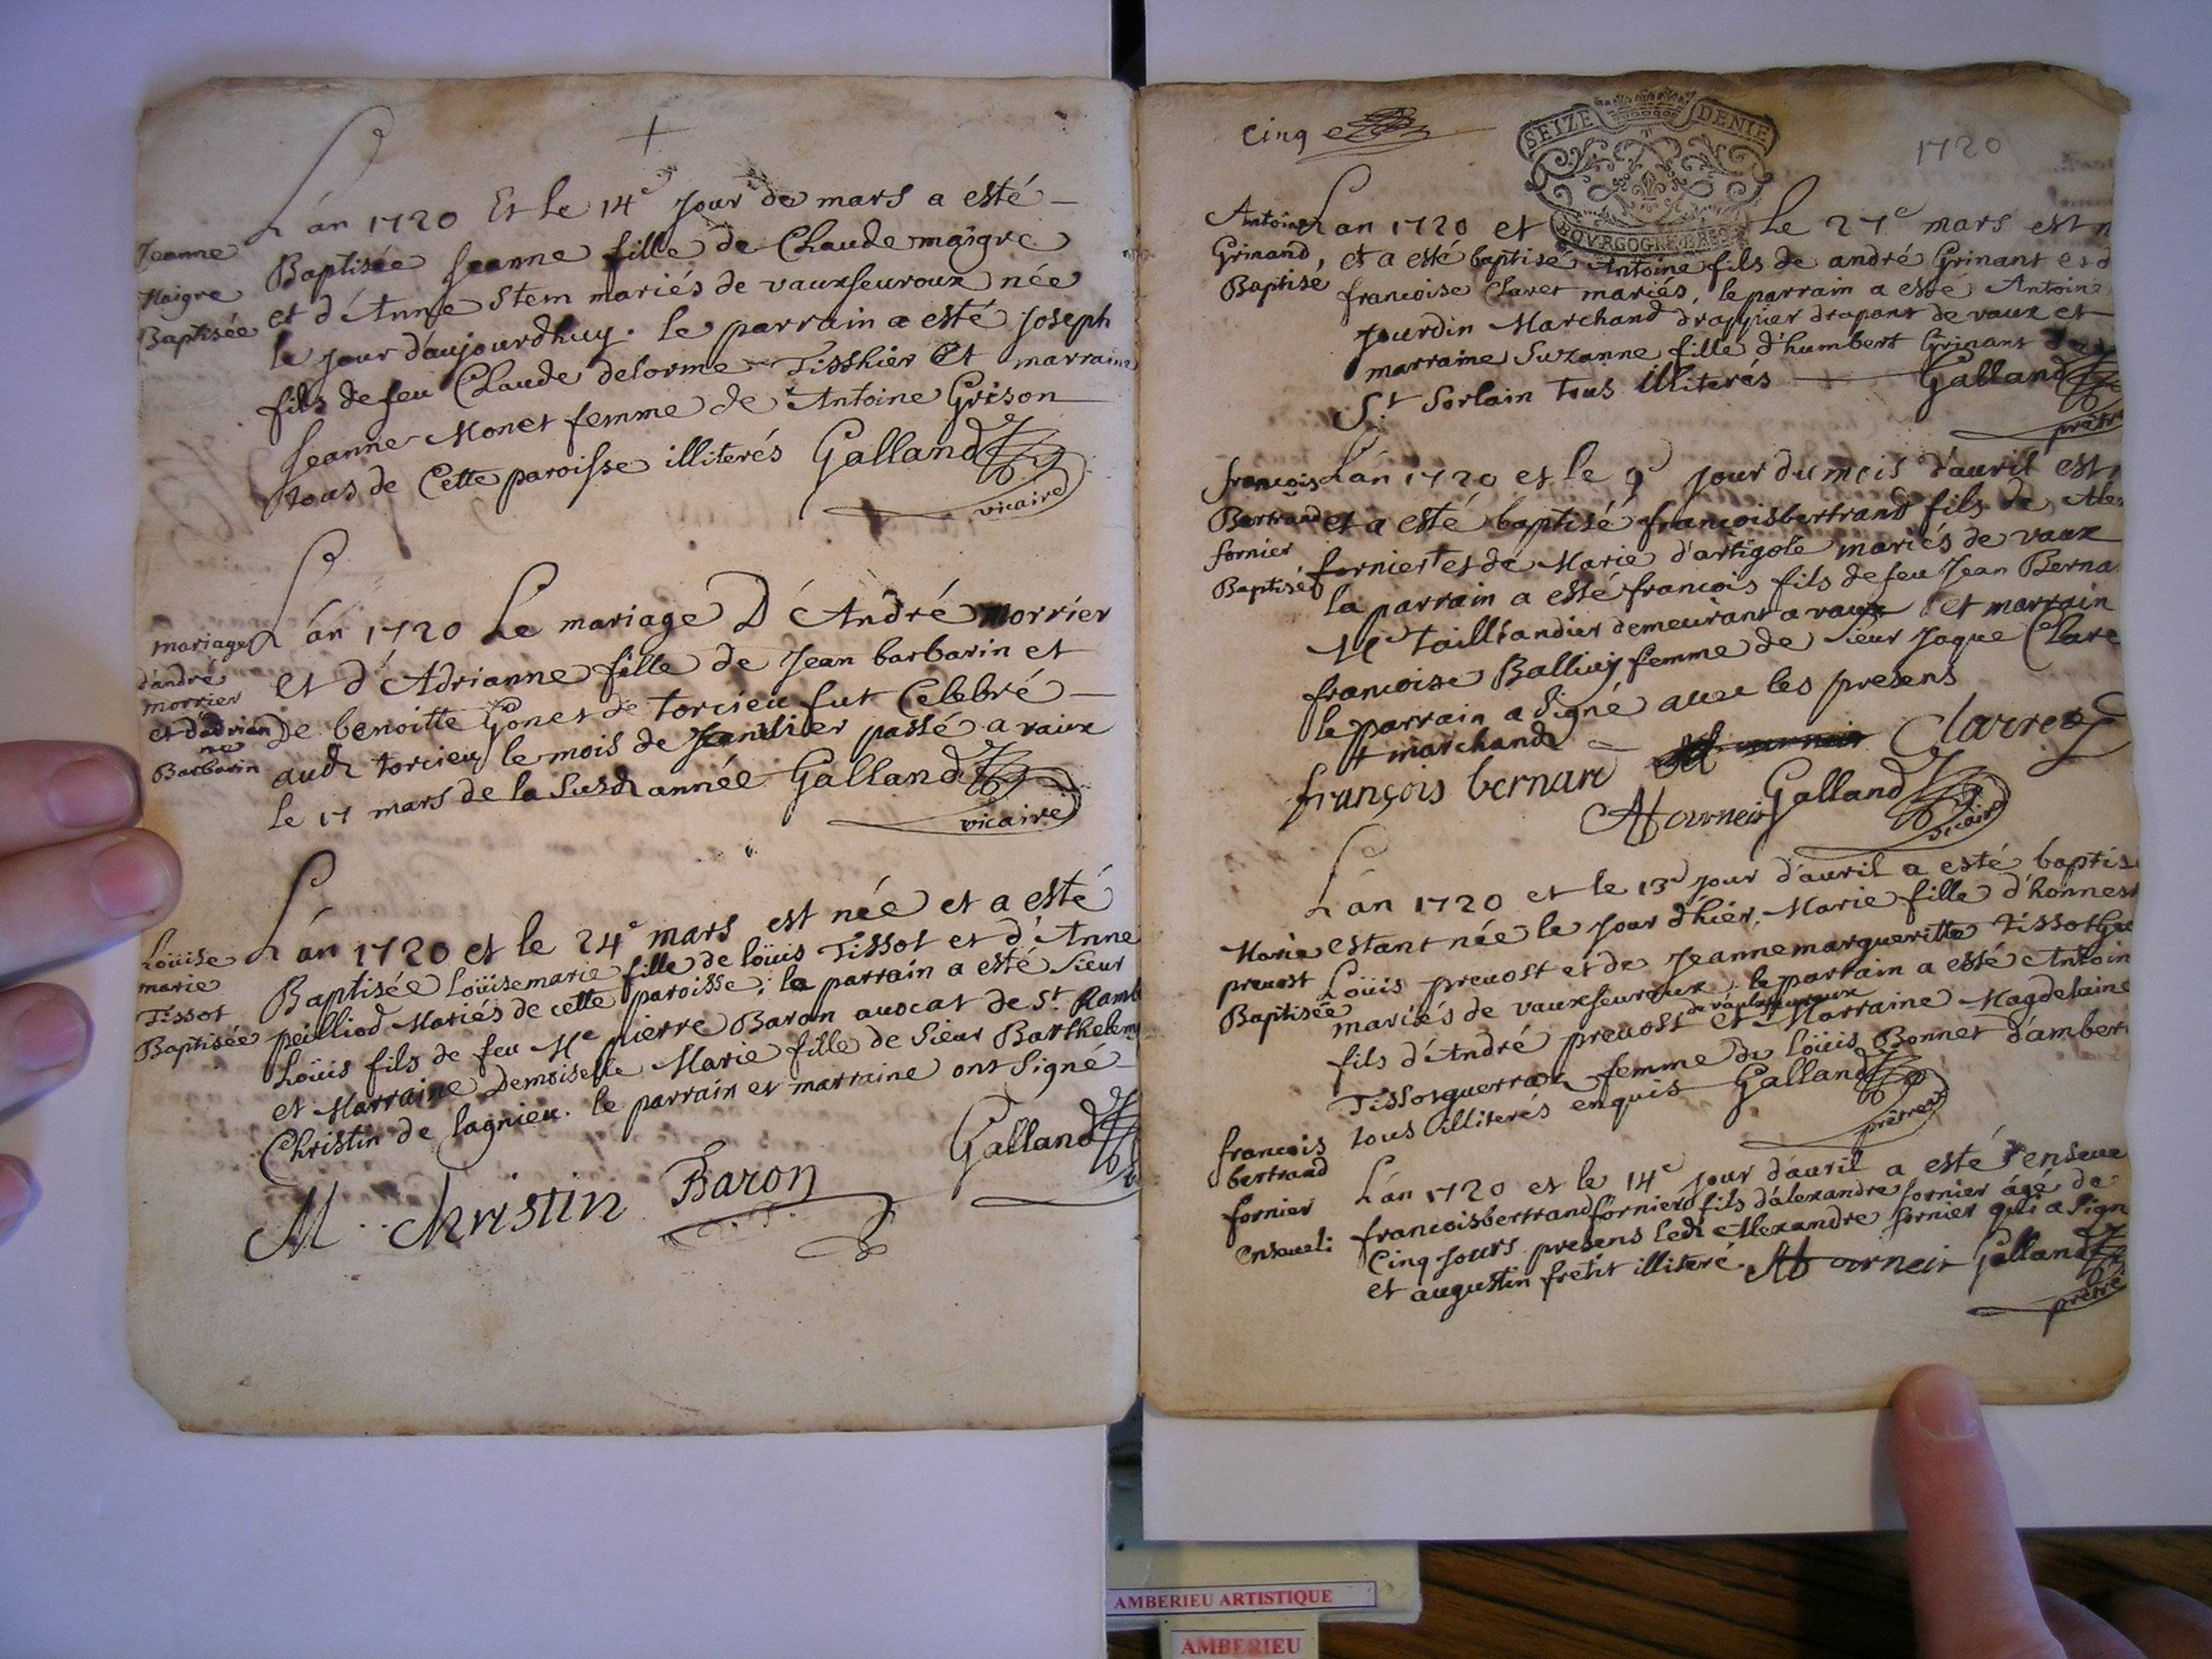 Jeanne
Maigre
Baptisée
L'an 1720 Et le 14e jour de mars a esté
Baptisée Jeanne fille de Claude maigre
et d'Anne Stem mariés de vauxfeuroux née
le jour d'aujourdhuy. le parrain a esté joseph
fils de feu Claude delorme Tisshier Et marraine
Jeanne Monet femme de Antoine Grison
tous de Cette paroisse illiterés Galland
vicaire
mariage
d'andré
morrier
et d'adrian
ne
Barbarin
L'an 1720 Le mariage D'André morrier
et d'Adrianne fille de Jean barbarin et
De benoitte Gonet de torcieu fut Celebré
audt torcieu le mois de Janvier passé a vaux
le 17 mars de la Susdt année Galland
vicaire
Loüise
marie
Tissot
Baptisée
L'an 1720 et le 24e mars est née et a esté
Baptisée Loüisemarie fille de loüis Tissot et d'Anne
peilliod Mariés de cette paroisse; le parrain a esté Sieur
Loüis fils de feu Me pierre Baron avocat de St Ramb
et Marraine Demoiselle Marie fille de Sieur Barthelemy
Christin de lagnieu. le parrain et marraine ont Signé
Galland
M. Christin Baron
cinq
SEIZE DENIE
BOURGOGNE BRES
1720
Antoine
Grinand,
Baptisé
L'an 1720 et Le 27e mars est n
et a esté baptisé Antoine fils de andré Grinant et d
francoise Claret mariés, le parrain a esté Antoine
Jourdin Marchand drappier drapant de vaux et
marraine Suzanne fille d'humbert Grinant de
St Sorlain tous illiterés Galland
prêtre
francois
Bertrand
fornier
Baptisé
L'an 1720 et le 9e jour du mois d'auril est
et a esté baptisé francoisbertrand fils de Ale
fornier + et de Marie d'artigole mariés de vaux
la parrain a esté francois fils de feu Jean Berna
Me tailliandier demeurant a vaux et marrain
francoise Balliuy femme de Sieur Jaque Clare
le parrain a Signé auec les presens
+ marchand
françois bernard Clarret
Afournier Galland
vicaire
Marie
preuost
Baptisée
L'an 1720 et le 13e jour d'auril a esté baptis
estant née le jour d'hier, Marie fille d'honnest
Loüis preuost et de Jeannemargueritte Tissotgue
mariés de vauxfeuroux; le parrain a esté Antoin
fils d'André preuost de vauxfeuroux et Marraine Magdelaine
Tissotguerraz femme de loüis Bonnet d'amber
tous illiterés enquis Galland
prêtre
francois
bertrand
fornier
Enseueli
L'an 1720 et le 14e jour d'auril a esté enseue
francoisbertrandfornier fils d'alexandre fornier âgé de
Cinq jours presens ledt Alexandre fornier qui a Sign
et augustin fretit illiteré. Afournier Galland
prêtre
AMBERIEU ARTISTIQUE
AMBERIEU